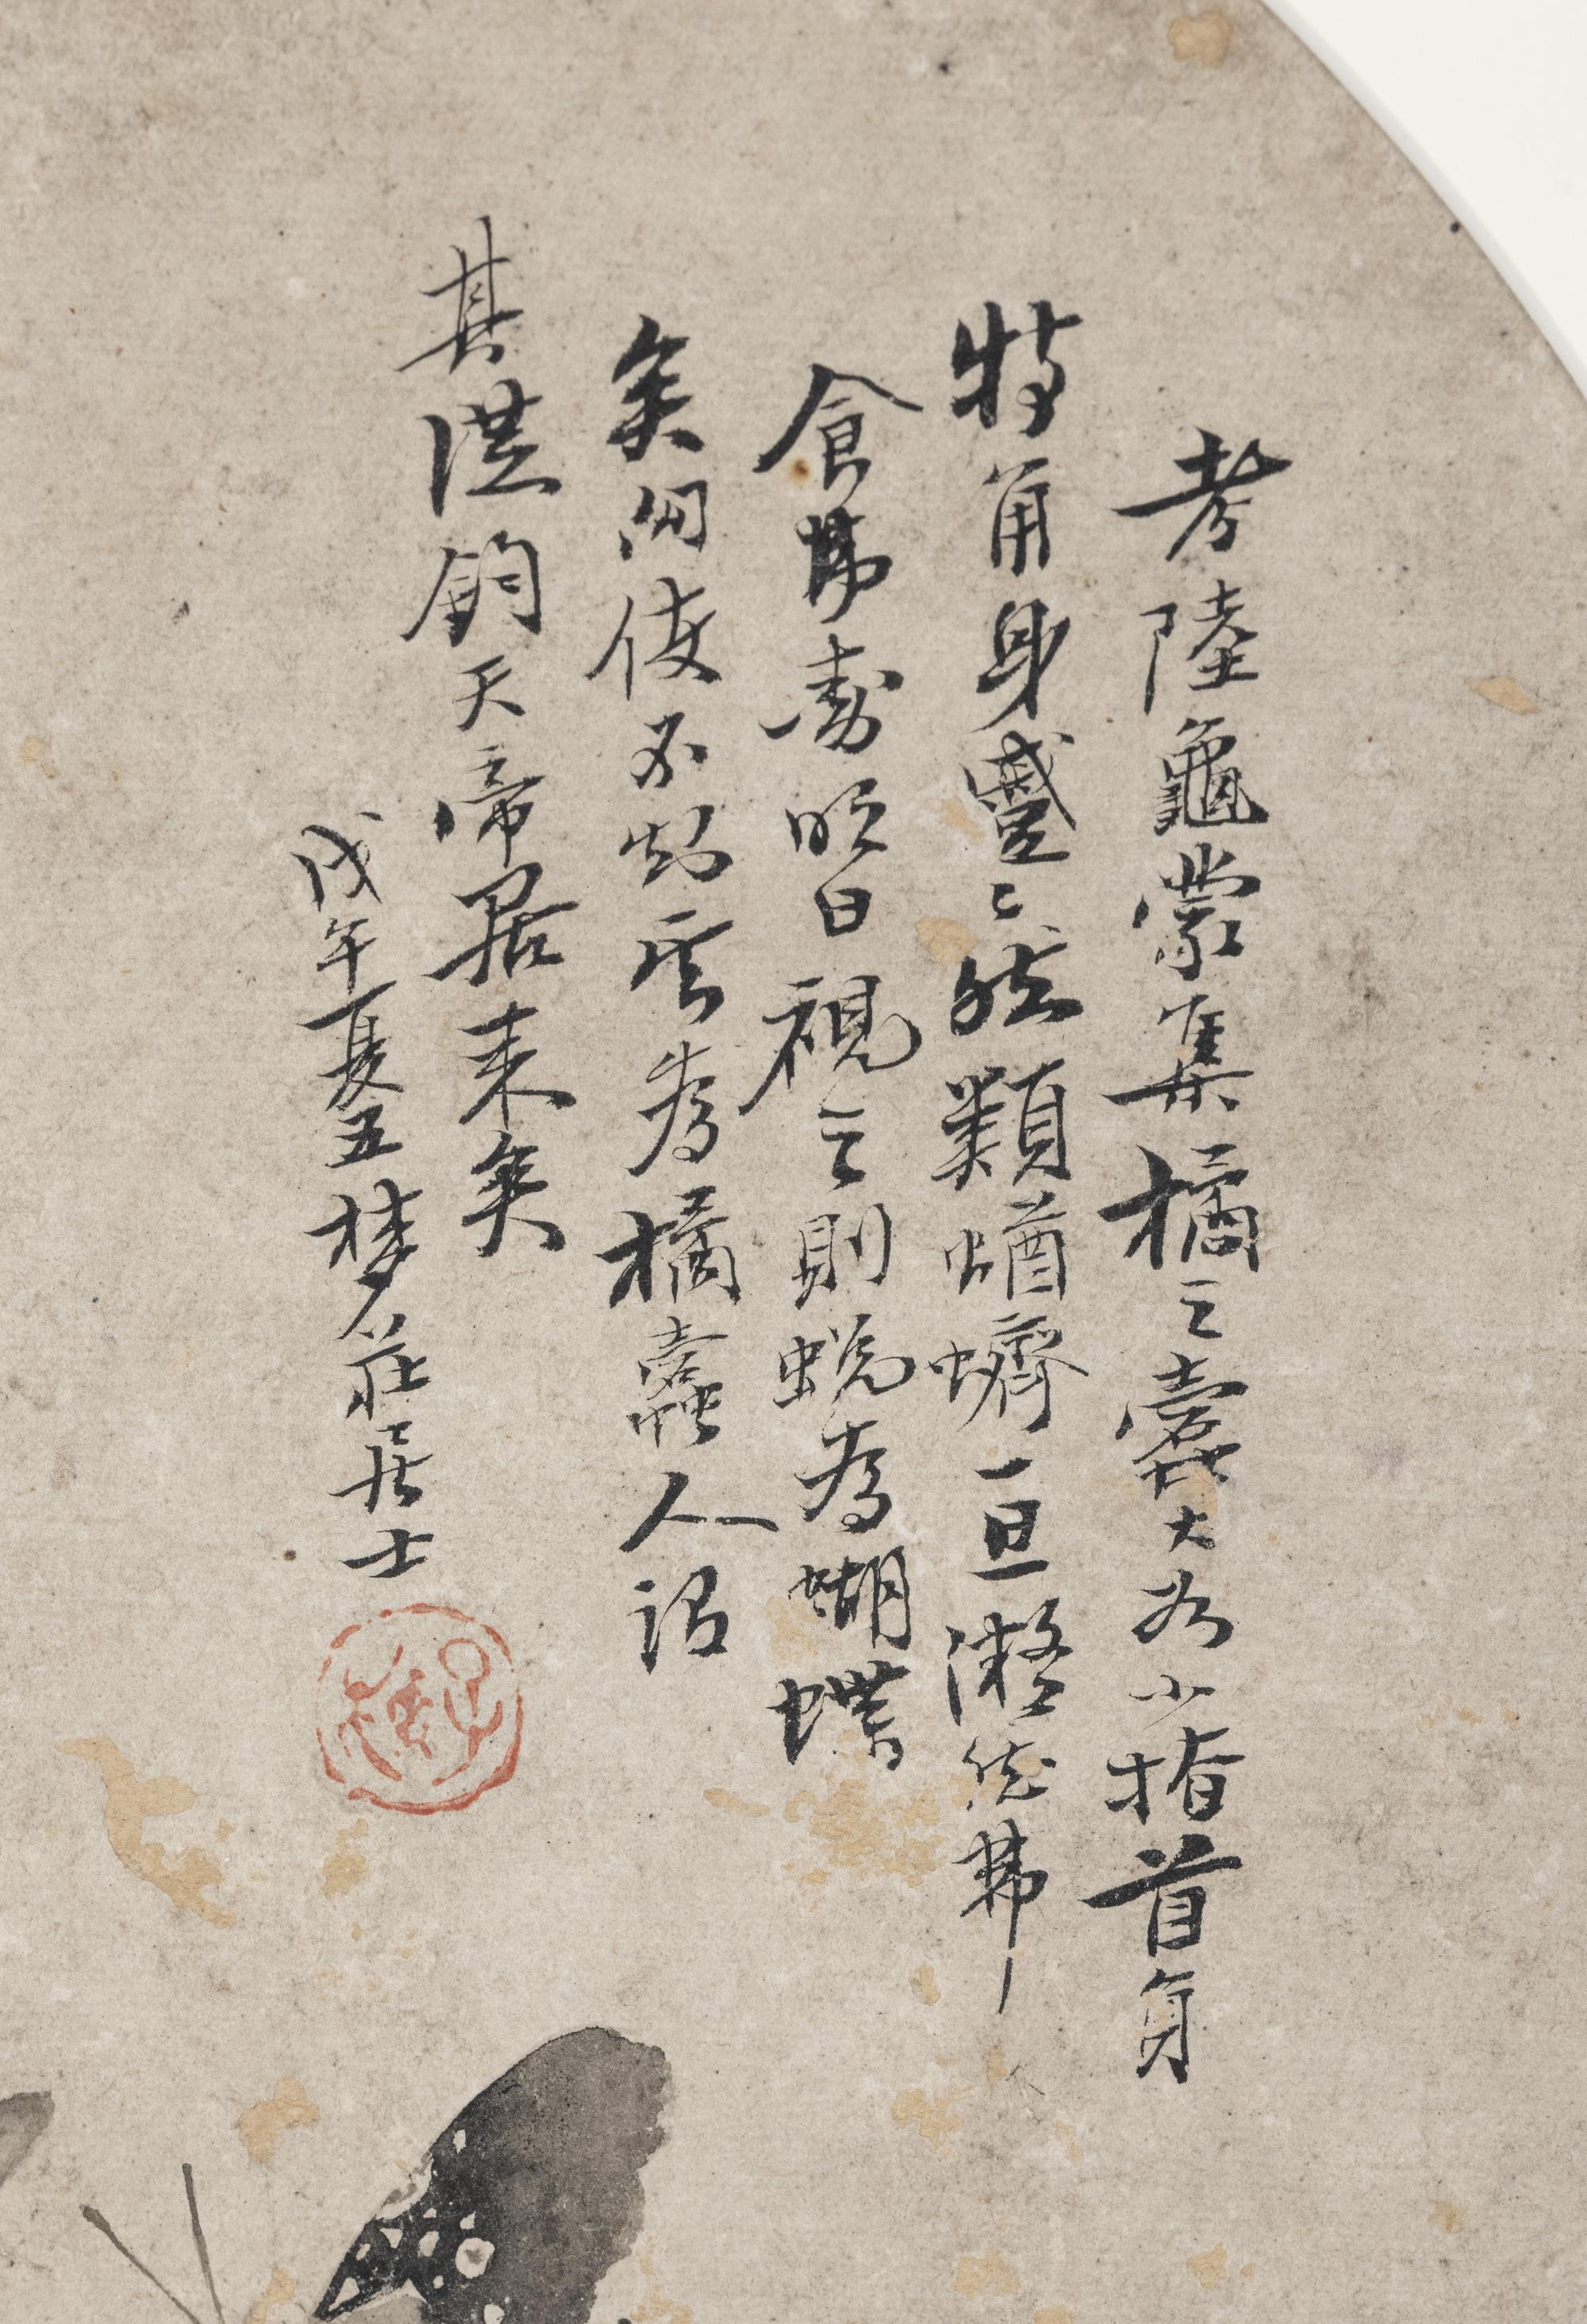 考陸龜蒙集橘之蠹大如小指首負
特角身蹙〻然類蝤蠐一旦凝然弗
食弗動明日視之則蛻為蝴蝶
矣向使不知其為橘蠹人謂
其從鈞天帝居来矣
戊午夏五夢莊居士